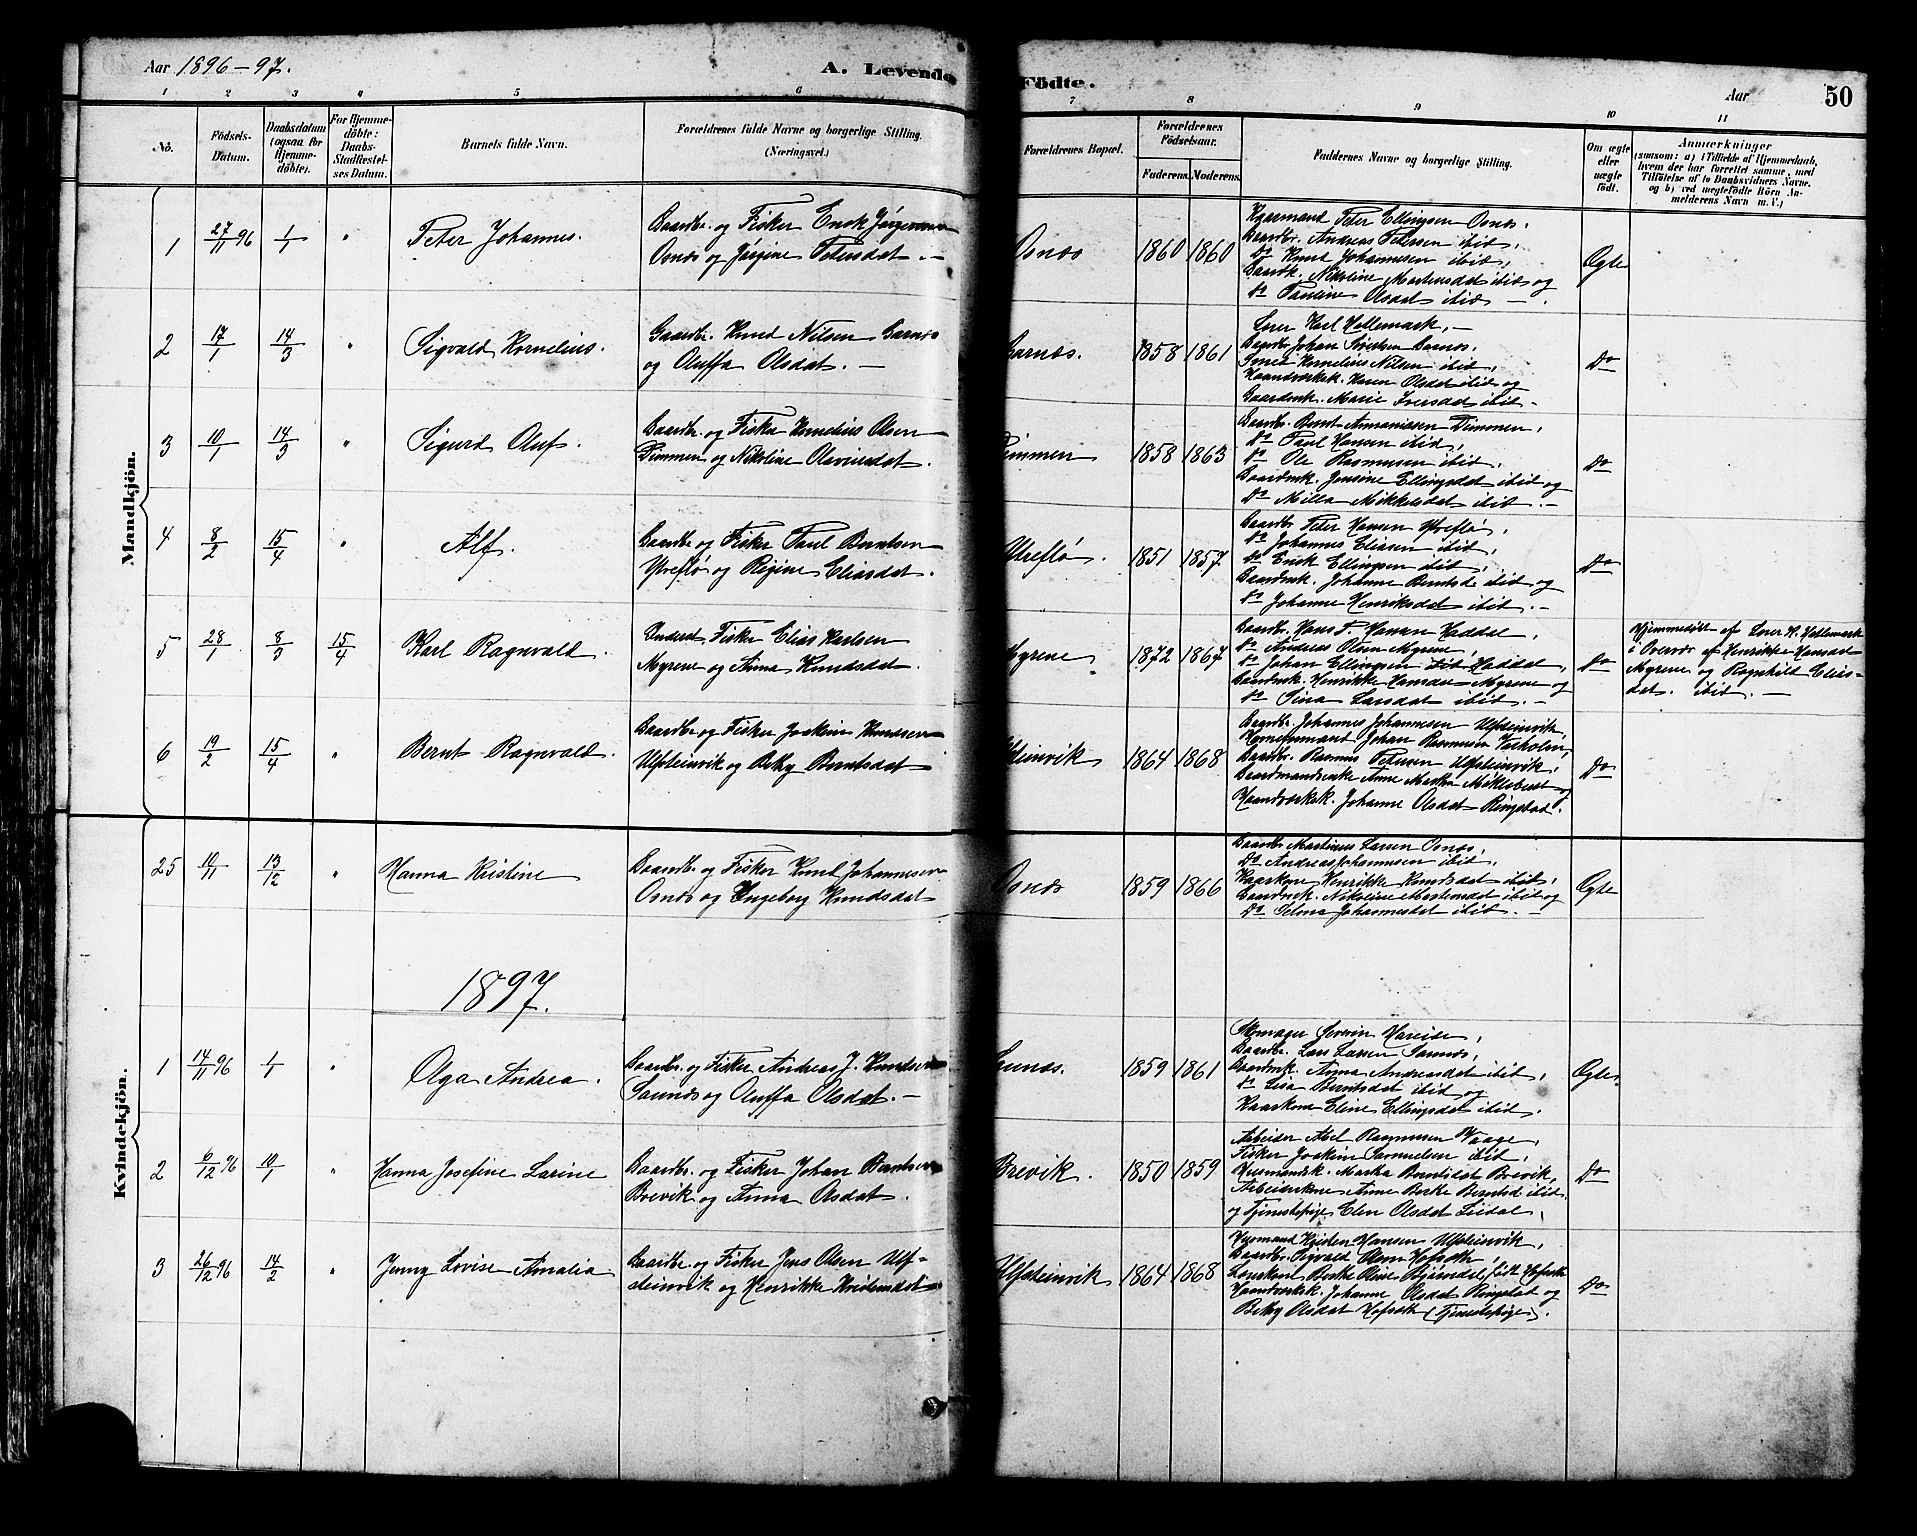 Aar 1896-97.
A. Levende Födte.
Aar
50
1 2 3 4 5 6 7 8 9 10 11
No.
Födsels-Datum.
Daabsdatum (ogsaa for Hjemmedöbte).
For Hjemmedöbte: Daabs-Stadfæstelses Datum.
Barnets fulde Navn.
Forældrenes fulde Navne og borgerlige Stilling. (Næringsvei.)
Forældrenes Bopæl.
Forældrenes Födselsaar.
Faderens. Moderens.
Faddernes Navne og borgerlige Stilling.
Om ægte eller uægte födt.
Anmærkninger
(saasom: a) i Tilfælde af Hjemmedaab,
hvem der har forrettet samme, med
Tilföielse af to Daabsvidners Navne.
og b) ved uægtefödte Börn An-
melderens Navn m. V.)
Mandkjön.
1 27/11 96 1/1 " Peter Johannes.
Gaardbr. og Fisker Enok Jørgensen
Osnæs og Jørgine Petersdat.
Osnæs 1860 1860
Kaarmand Peter Ellingsen Osnæs.
Gaardbr. Andreas Petersen ibid,
Do Knut Johannesen ibid,
Gaardk. Nikoline Martinsdat ibid og
do Pauline Olsdat ibid
Ægte
2 17/1 14/3 " Sigvald Kornelius.
Gaardbr. Knud Nilsen Garnæs
og Oluffa Olsdat.
Garnæs. 1858 1861
Lærer Karl Hellemark,
Gaardbr Johan Garnæs.
Smed Kornelius Nilsen ibid,
Haandværksk. Karen Olsdat ibid og
Gaardmk. Marie Iversdat ibid
Do
3 10/1 14/3 " Sigurd Oluf.
Gaardbr. og Fisker Kornelius Olsen
Dimmen og Nikoline Olavinsdat.
Dimmen 1858 1863
Gaardbr. Bernt Ananiassen Dimmen,
do Paul Hansen ibid,
do Ole Rasmussen ibid,
Gaardmk. Jensine Ellingsdat ibid og
do Milla Mikkelsdat ibid.
Do
4 8/2 15/4 " Alf.
Gaardbr og Fisker Paul Berntsen
Ytreflø og Regine Eliasdat.
Ytreflø. 1851 1857
Gaardbr Peter Hansen Ytreflø,
do Johannes Eliasen ibid,
do Enok Ellingsen ibid,
Gaardmk. Johanne Berntsd. ibid og
do Johanne Henriksdat ibid.
Do
5 28/1 8/3 15/4 Karl Ragnvald.
Inderst, Fisker Elias Karlsen
Myrene og Anna Knudsdat.
Myrene 1872 1867
Gaardbr. Hans P. Hansen Haddal,
do Andreas Olsen Myrene,
do Johan Ellingsen Haddal,
Gaardmk. Henrikke Hansdat Myrene og
do Sina Larsdat ibid.
Do
Hjemmedøbt af Lærer K. Hellemark
i Overvær af Henrikke Hansdat
Myrene og Ragnhild Elias-
dat. ibid.
6 19/2 15/4 " Bernt Ragnvald.
Gaardbr og Fisker Joakim Knudsen
Ulfsteinvik og Betzy Berntsdat
Ulfsteinvik 1864 1868
Gaardbr. Johannes Johannesen Ulfsteinvik,
Johan Rasmussen
Gaardbr. Rasmus Petersen Ulfsteinvik,
Gaardmandsenke Anne Martha Mikkelsdat og
Haandværksk. Johanne Olsdat Ringstad.
Do
Kvindekjön.
25 10/11 13/12 " Hanna Kristine
Gaardbr. og Fisker Knud Johannesen
Osnæs og Ingeborg Knudsdat
Osnæs 1859 1866
Gaardbr Martinus Larsen Osnæs,
Do Andreas Johannesen ibid.
Kaarkone Henrikke Knudsdat ibid,
Gaardmk. Nikoline Martinsdat ibid og
Do Selma Johannesdat ibid.
Ægte
1897.
1 14/11 96 1/1 " Olga Andrea.
Gaardbr. og Fisker Andreas J. Knudsen
Saunæs og Oluffa Olsdat.
Saunæs. 1859 1861
Skomager Severin Hareide,
Gaardbr. Lars Larsen Saunæs,
Gaardmk. Anna Andreasdat ibid,
do Lisa Berntsdat ibid og
Kaarkone Eline Ellingsdat ibid.
Ægte
2 6/12 96 10/1 " Hanna Josefine Larine
Gaardbr. og Fisker Johan Berntsen
Brevik og Anna Olsdat.
Brevik. 1850 1859
Arbeider Abel Rasmussen Waage,
Fisker Joakim Samuelsen ibid,
Husmandsk. Martha Berntsdat Brevik,
Arbeiderkone Anne Berthe Berntsd ibid
og Tjenestepige Elen Olsdat Leidal.
Do
3 26/12 96 14/2 " Jenny Lovise Amalia
Gaardbr. og Fisker Jens Olsen Ulf-
steinvik og Henrikke Kristensdat
Ulfsteinvik 1864 1868
Husmand Kristen Hansen Ulfsteinvik,
Gaardbr. Sigvald Olsen Hofseth
Lærerkone Berthe Oline Bjørndal født Hofseth
Haandværksk. Johanne Olsdat Ringstad og
Betzy Olsdat Hofseth (Tjenestepige).
Do